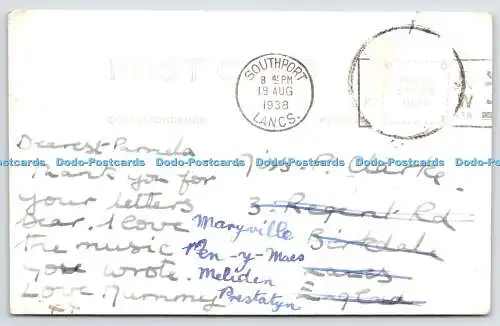 POST CARD
SOUTHPORT
8 45 PM
19 AUG
1938
LANCS.
Dearest Pamela
Thank you for
your letters
dear. I love
the music
you wrote.
Love. Mummy
xx
Miss. P. Clarke.
3. Regent Rd
Birkdale
Lancs
England
Maryville
Pen-y-Maes
Meliden
Prestatyn
Dodo-Postcards Dodo-Postcards Dodo-Postcards Dodo-Postcards Dodo-Postcards Dodo-Postcards